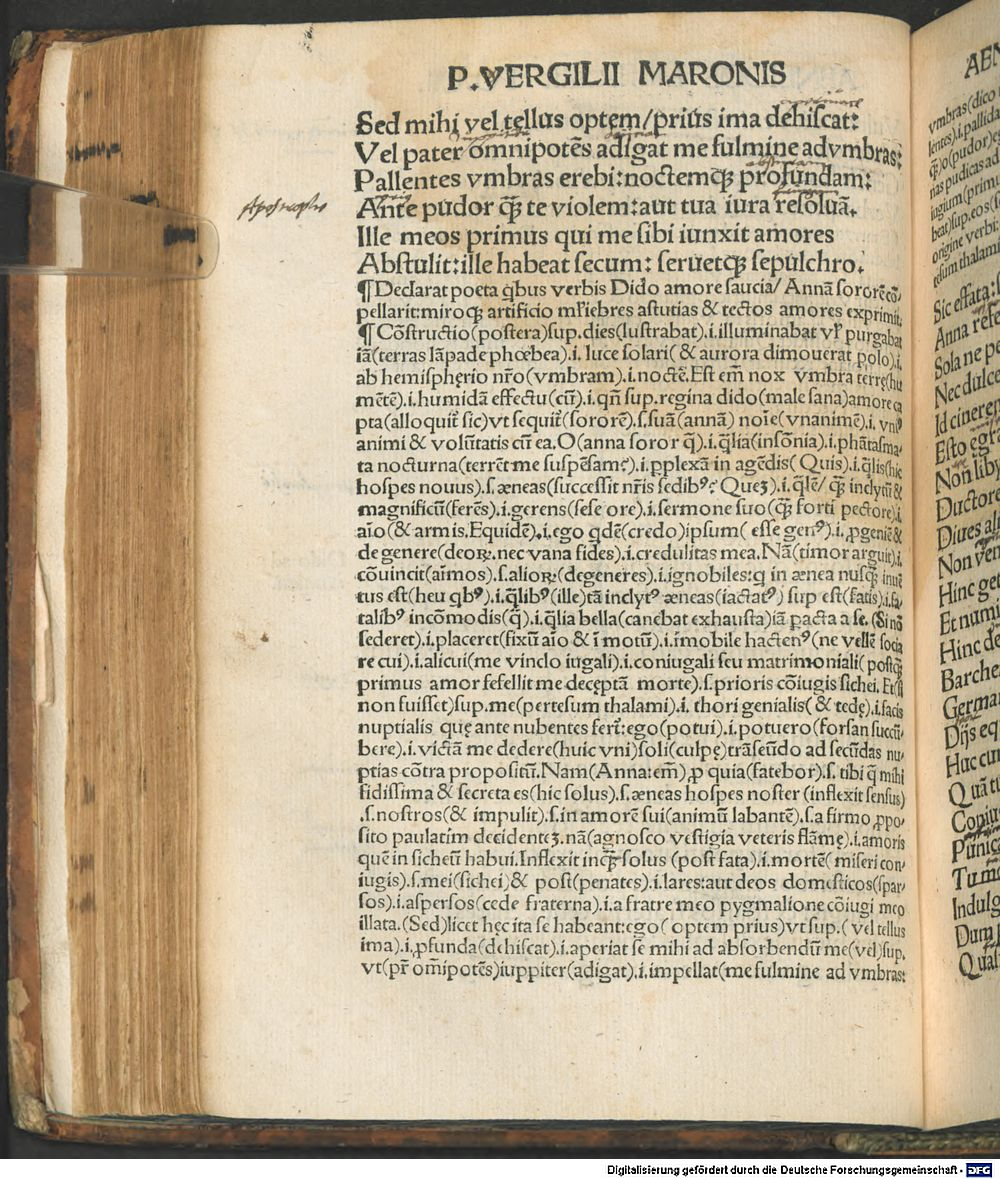 P. VERGILII MARONIS
Sed mihi vel tellus optem/prius ima dehiscat:
Vel pater omnipotēs adigat me fulmine ad vmbras:
Pallentes vmbras erebi: noctemqꝫ profundam:
Ante pudor q̄ꝫ te violem: aut tua iura resoluā.
Ille meos primus qui me sibi iunxit amores
Abstulit: ille habeat secum: seruetqꝫ sepulchro.
¶ Declarat poeta qbus verbis Dido amore saucia/ Annā sororē cō-
pellarit: miroqꝫ artificio mr̄iebres astutias & tectos amores exprimit.
¶ Cōstructio (postera) sup. dies (lustrabat) .i. illuminabat vl' purgabat
iā (terras lāpade phœbea) .i. luce solari ( & aurora dimouerat polo) .i.
ab hemispherio nr̄o (vmbram) .i. noctē. Est em̄ nox vmbra terrę (hu
mētē) .i. humidā effectu (cū) .i. qn̄ sup. regina dido (male sana) amore ca
pta (alloquit̄ sic) vt sequit̄ (sororē) .s. suā (annā) noīe (vnanimē) .i. vniꝰ
animi & volūtatis cū ea. O (anna soror q̄) .i. q̄lia (insōnia) .i. phātasma-
ta nocturna (terrēt me suspēsam?) .i. ꝑplexā in agēdis ( Quis) .i. q̄lis (hic
hospes nouus) .s. æneas (successit nr̄is sedibꝰ? Queꝫ) .i. q̄lē/ q̄ꝫ inclytū &
magnificū (ferēs) .i. gerens (sese ore) .i. sermone suo (q̄ꝫ forti pectore) .i.
aīo (& armis. Equidē) .i. ego qdē (credo) ipsum ( esse genꝰ) .i. ꝓgeniē &
de genere (deoꝝ. nec vana fides) .i. credulitas mea. Nā (timor arguit) .i.
cōuincit (aīmos) .s. alioꝝ (degeneres) .i. ignobiles: q in ænea nusq̄ꝫ inuē
tus est (heu qbꝰ) .i. q̄libꝰ (ille) tā inclytꝰ æneas (iactatꝰ) sup est (fatis) .i. fa-
talibꝰ incōmodis (q̄) .i. q̄lia bella (canebat exhausta) iā ꝑacta a se. (Si nō
sederet) .i. placeret (fixū aīo & īmotū) .i. īmobile hactenꝰ (ne vellē socia
re cui) .i. alicui (me vinclo iugali) .i. coniugali seu matrimoniali ( postq̄ꝫ
primus amor fefellit me deceptā morte) .s. prioris cōiugis sichei. Et (si
non fuisset) sup. me (pertesum thalami) .i. thori genialis ( & tedę) .i. facis
nuptialis quę ante nubentes fert̄: ego (potui) .i. potuero (forsan succū-
bere) .i. victā me dedere (huic vni) soli (culpę) trāseūdo ad secūdas nu-
ptias cōtra propositū. Nam (Anna: em̄) ꝓ quia (fatebor) .s. tibi q̄ mihi
fidissima & secreta es (hic solus) .s. æneas hospes noster (inflexit sensus)
.s. nostros (& impulit) .s. in amorē sui (animū labantē) .s. a firmo ꝓpo-
sito paulatim decidenteꝫ. nā (agnosco vestigia veteris flāmę) .i. amoris
quē in sicheū habui. Inflexit inq̄ꝫ solus (post fata) .i. mortē ( miseri con-
iugis) .s. mei (sichei) & post (penates) .i. lares: aut deos domesticos (spar-
sos) .i. aspersos (cede fraterna) .i. a fratre meo pygmalione cōiugi meo
illata. (Sed) licet hec ita se habeant: ego ( optem prius) vt sup. ( vel tellus
ima) .i. ꝓfunda (dehiscat) .i. aperiat se mihi ad absorbendū me (vel) sup.
vt (pr̄ om̄ipotēs) iuppiter (adigat) .i. impellat (me fulmine ad vmbras:
AEN
vmbras (dico
lentes) .i. pallida
q̄ꝫ) o (pudor) e
nas pudicas ad
iugium (primu
beat) sup. eos (s
origine verbi:
tesum thalami
Sic effata:
Anna refe
Sola ne pe
Nec dulce
Id cinerem
Esto ęgrā
Non liby
Ductore
Diues al
Non ven
Hinc get
Et numi
Hinc de
Barche
Germa
Dijs eq
Huc cur
Quā tu
Coniu
Punica
Tu mo
Indulg
Dum p
Qual
Digitalisierung gefördert durch die Deutsche Forschungsgemeinschaft - DFG